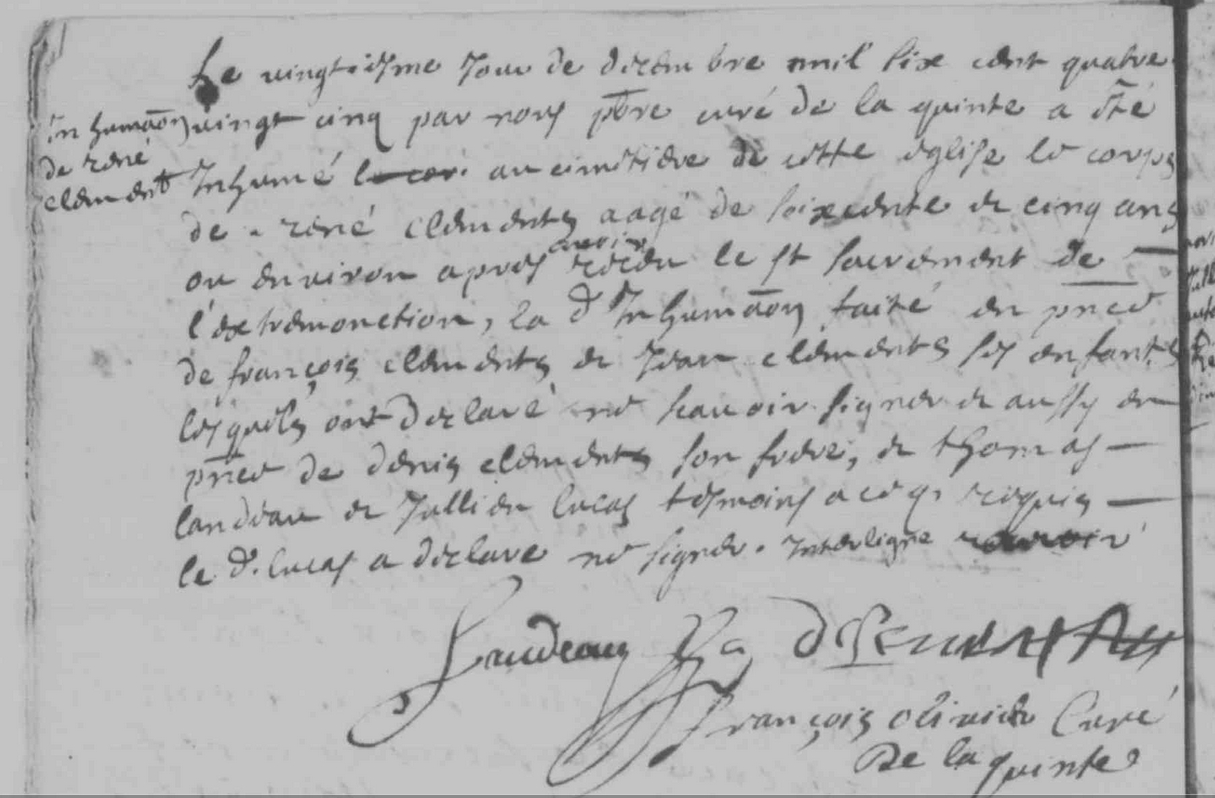 Le vingtiesme Jour de decembre mil sixe cent quatre
Inhumãon
de rené
clements
vingt cinq par nous pbre curé de la quinte a ésté
Inhumé le cor au cimétiere de cette église le corps
de rené clements aagé de soixcente et cinq ans
ou environ apres avoir receu le st sacrement de
l'extremonction, La d Inhumãon faite en pnce
de françois clements et Jean clements ses enfants
lesquels ont declaré ne scavoir signer et aussy en
pnce de denis clements son frere, et thomas
landeau et Jullien lucas tesmoins a ce requis
le d. lucas a declare ne signer. Interligne avoir
Landeau D Clements
françois olivier Curé
De la quinte